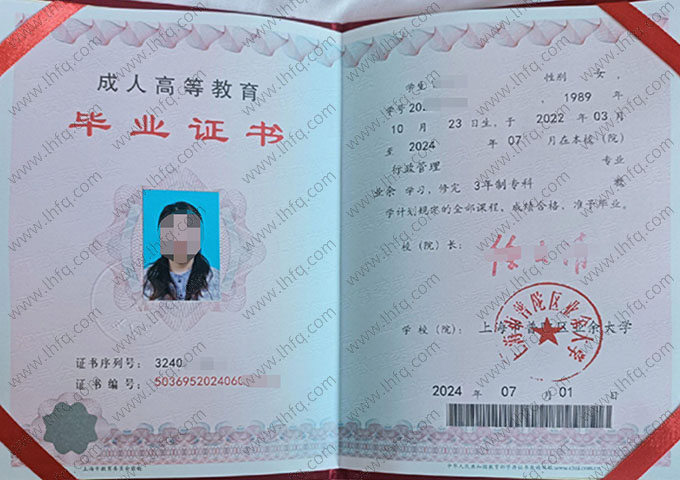 成人高等教育
毕业证书
证书序列号: 3240
证书编号: 5036952024060
上海市教育委员会监制
学生
性别 女
学号20
, 1989 年
10 月 23 日生, 于 2022 年 03 月
至 2024 年 07 月在本校(院)
行政管理 专业
业余 学习, 修完 3年制专科 教
学计划规定的全部课程, 成绩合格, 准予毕业。
校(院)长:
学校(院): 上海市普陀区业余大学
上海市普陀区业余大学
2024 年 07 月 01 日
www.lhfq.com